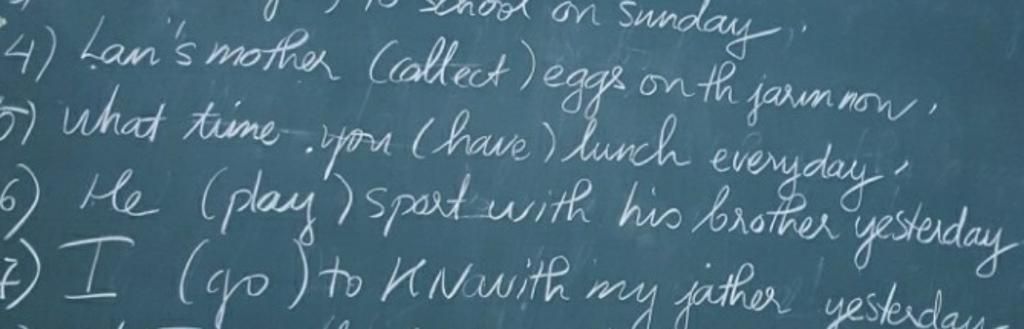 school on sunday.
4) Lan's mother (collect) eggs on th jarm now.
5) what time you (have) lunch everyday.
6) He (play) sport with his brother yesterday
7) I (go) to KNa with my jather yesterday